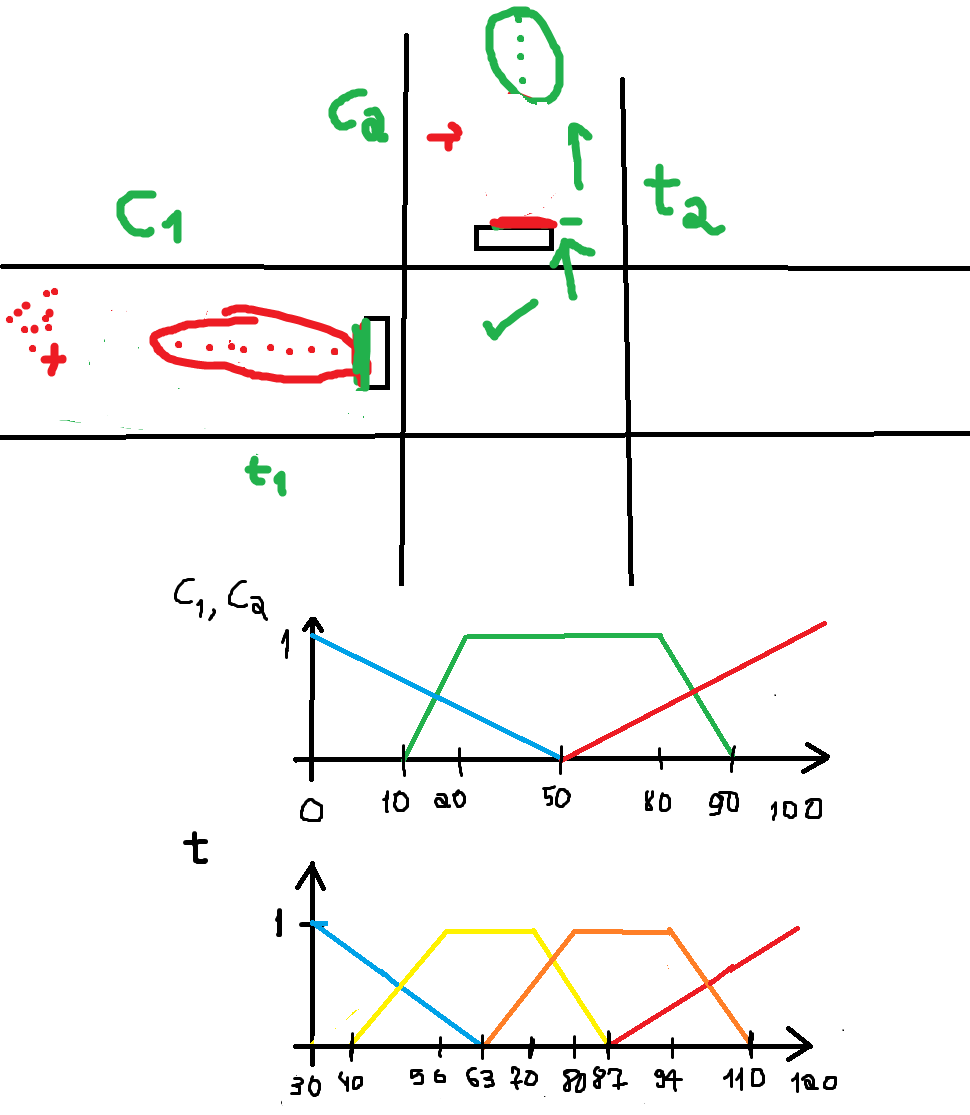 C2
t2
C1
t1
C1, C2
1
0 10 20 50 80 90 100
t
1
30 40 56 63 70 80 87 94 110 120